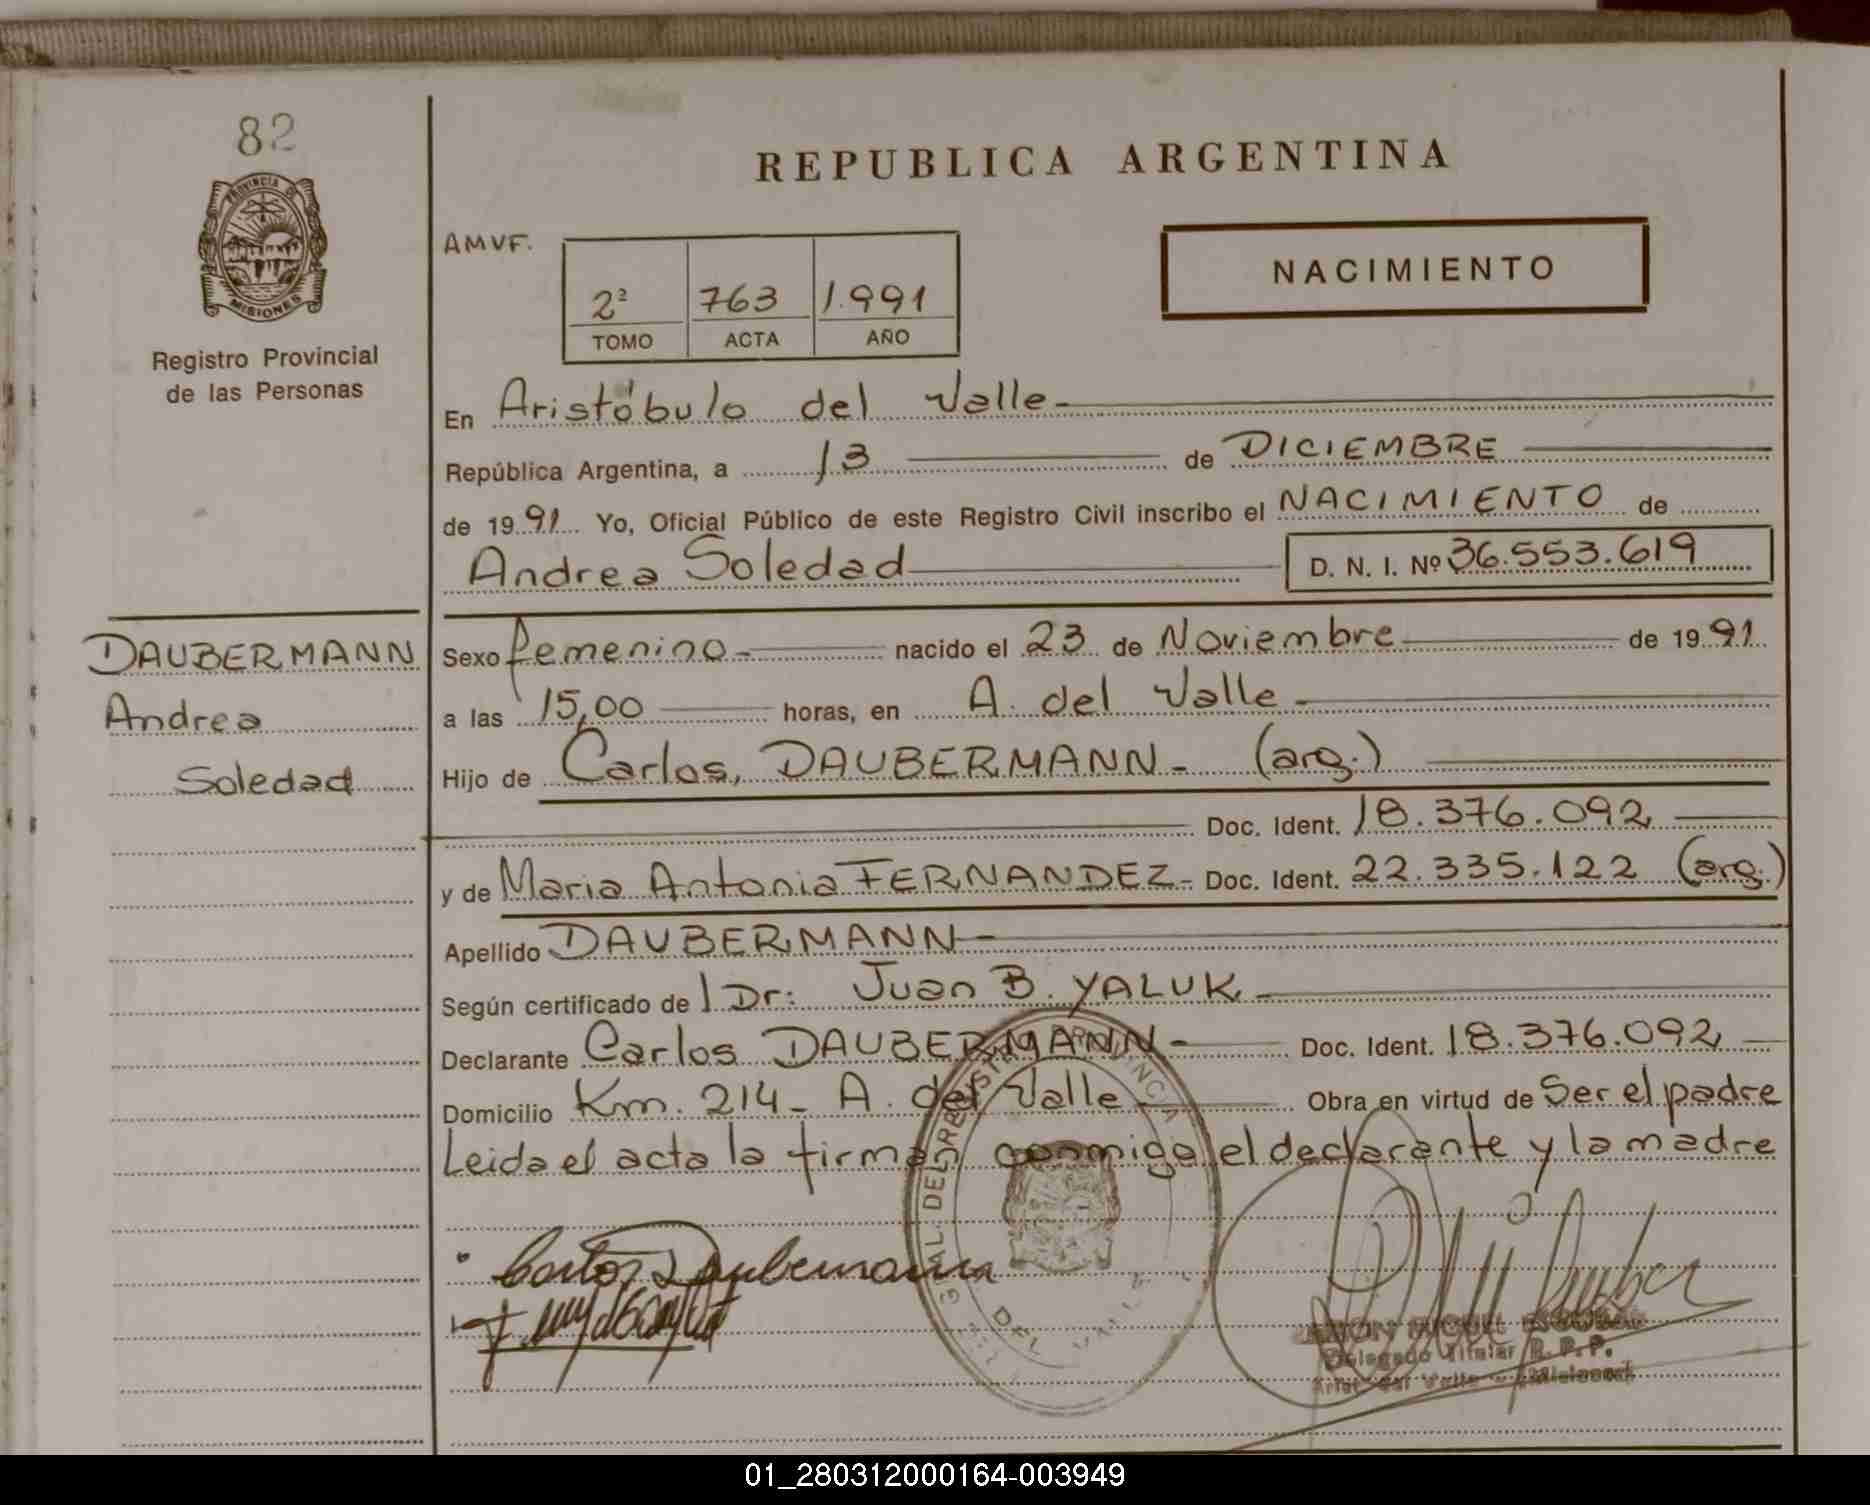 82
PROVINCIA DE
MISIONES
Registro Provincial
de las Personas
REPUBLICA ARGENTINA
AMVF.
2º 763 1.991
TOMO ACTA AÑO
NACIMIENTO
En Aristóbulo del Valle-
República Argentina, a 13 de DICIEMBRE
de 1991 Yo, Oficial Público de este Registro Civil inscribo el NACIMIENTO de
Andrea Soledad D. N. I. Nº 36.553.619
DAUBERMANN
Andrea
Soledad
Sexo femenino- nacido el 23 de Noviembre de 1991
a las 15,00 horas, en A. del Valle-
Hijo de Carlos, DAUBERMANN- (arg.)
Doc. Ident. 18.376.092
y de Maria Antonia FERNANDEZ- Doc. Ident. 22.335.122 (arg.)
Apellido DAUBERMANN-
Según certificado de Dr: Juan B. YALUK-
Declarante Carlos DAUBERMANN- Doc. Ident. 18.376.092
Domicilio Km. 214- A. del Valle- Obra en virtud de Ser el padre
Leida el acta la firman conmigo el declarante y la madre
Carlos Daubermann
DEL VALLE
Delegado Titular R.P.P.
01_280312000164-003949